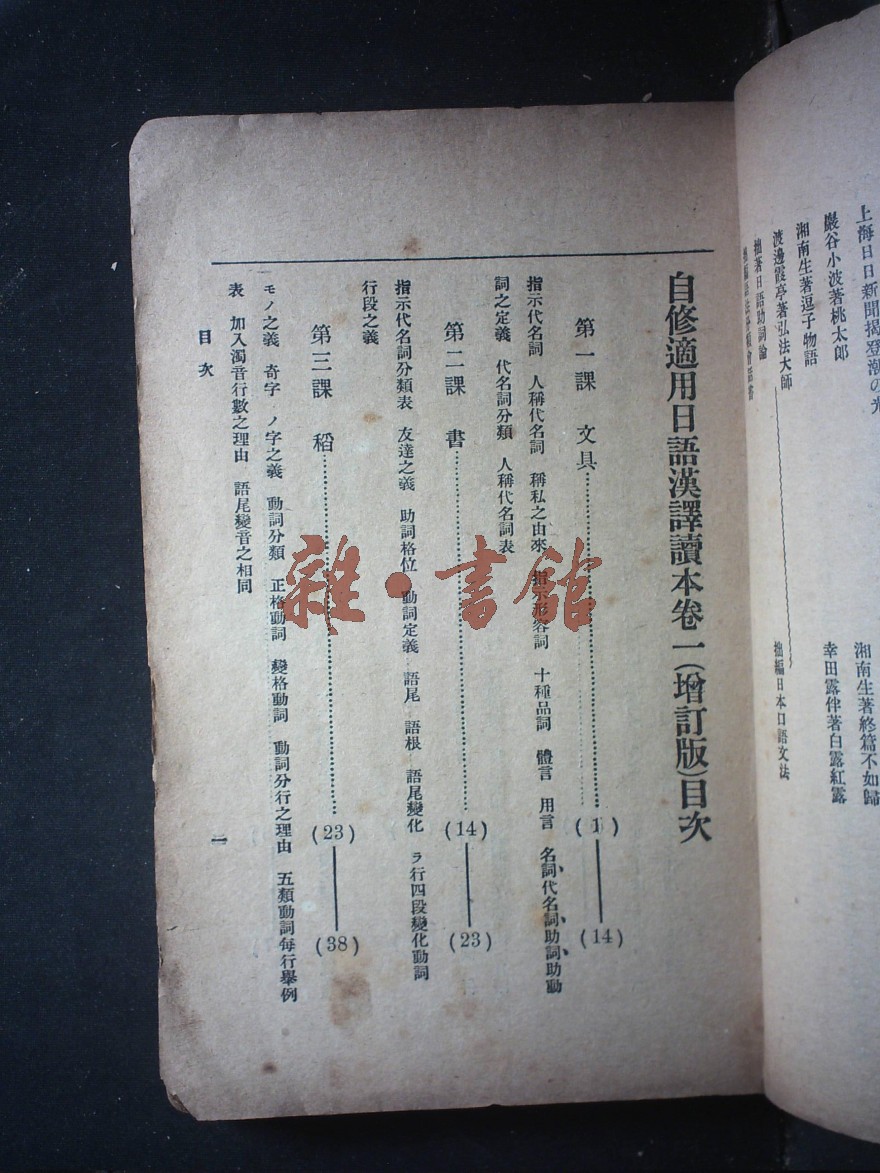 上海日日新聞揭登潮の光
巖谷小波著桃太郎
湘南生著終篇不如歸
湘南生著逗子物語
幸田露伴著白露紅露
渡邊霞亭著弘法大師
拙著日語助詞論
拙編日本口語文法
自修適用日語漢譯讀本卷一(增訂版)目次
第一課 文具 (1)—(14)
指示代名詞 人稱代名詞 稱私之由來 指示形容詞 十種品詞 體言 用言 名詞、代名詞、助詞、助動
詞之定義 代名詞分類 人稱代名詞表
第二課 書 (14)—(23)
指示代名詞分類表 友達之義 助詞格位 動詞定義 語尾 語根 語尾變化 ラ行四段變化動詞
行段之義
第三課 稻 (23)—(38)
モノ之義 奇字 ノ字之義 動詞分類 正格動詞 變格動詞 動詞分行之理由 五類動詞每行舉例
表 加入濁音行數之理由 語尾變音之相同
目次
一
雜·書館